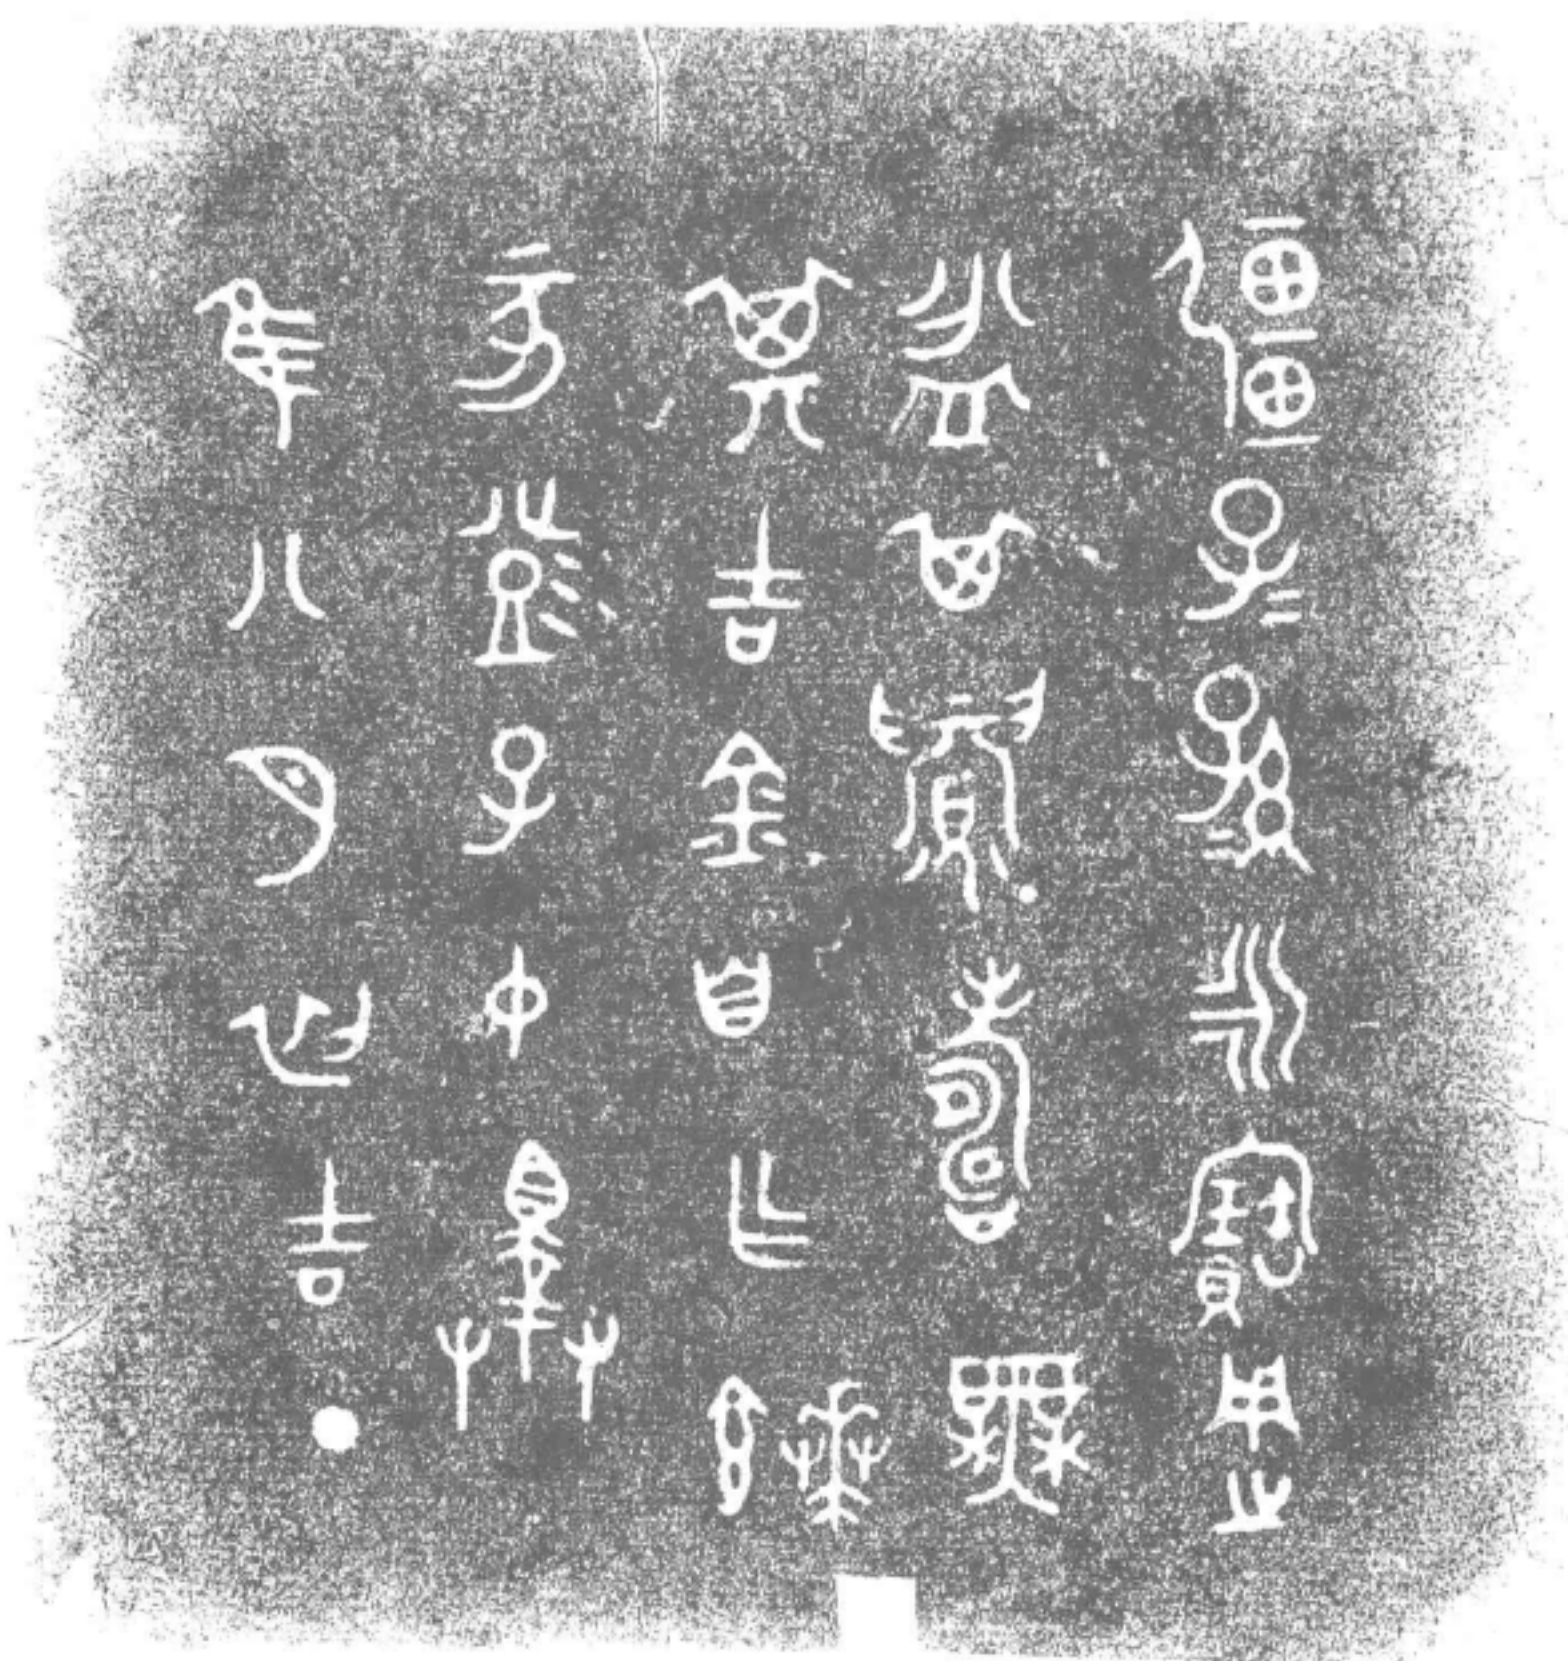 隹八月初吉丁
亥彭子中擇
其吉金自乍饙
盆其眉壽無
疆子=孫=永寶用之